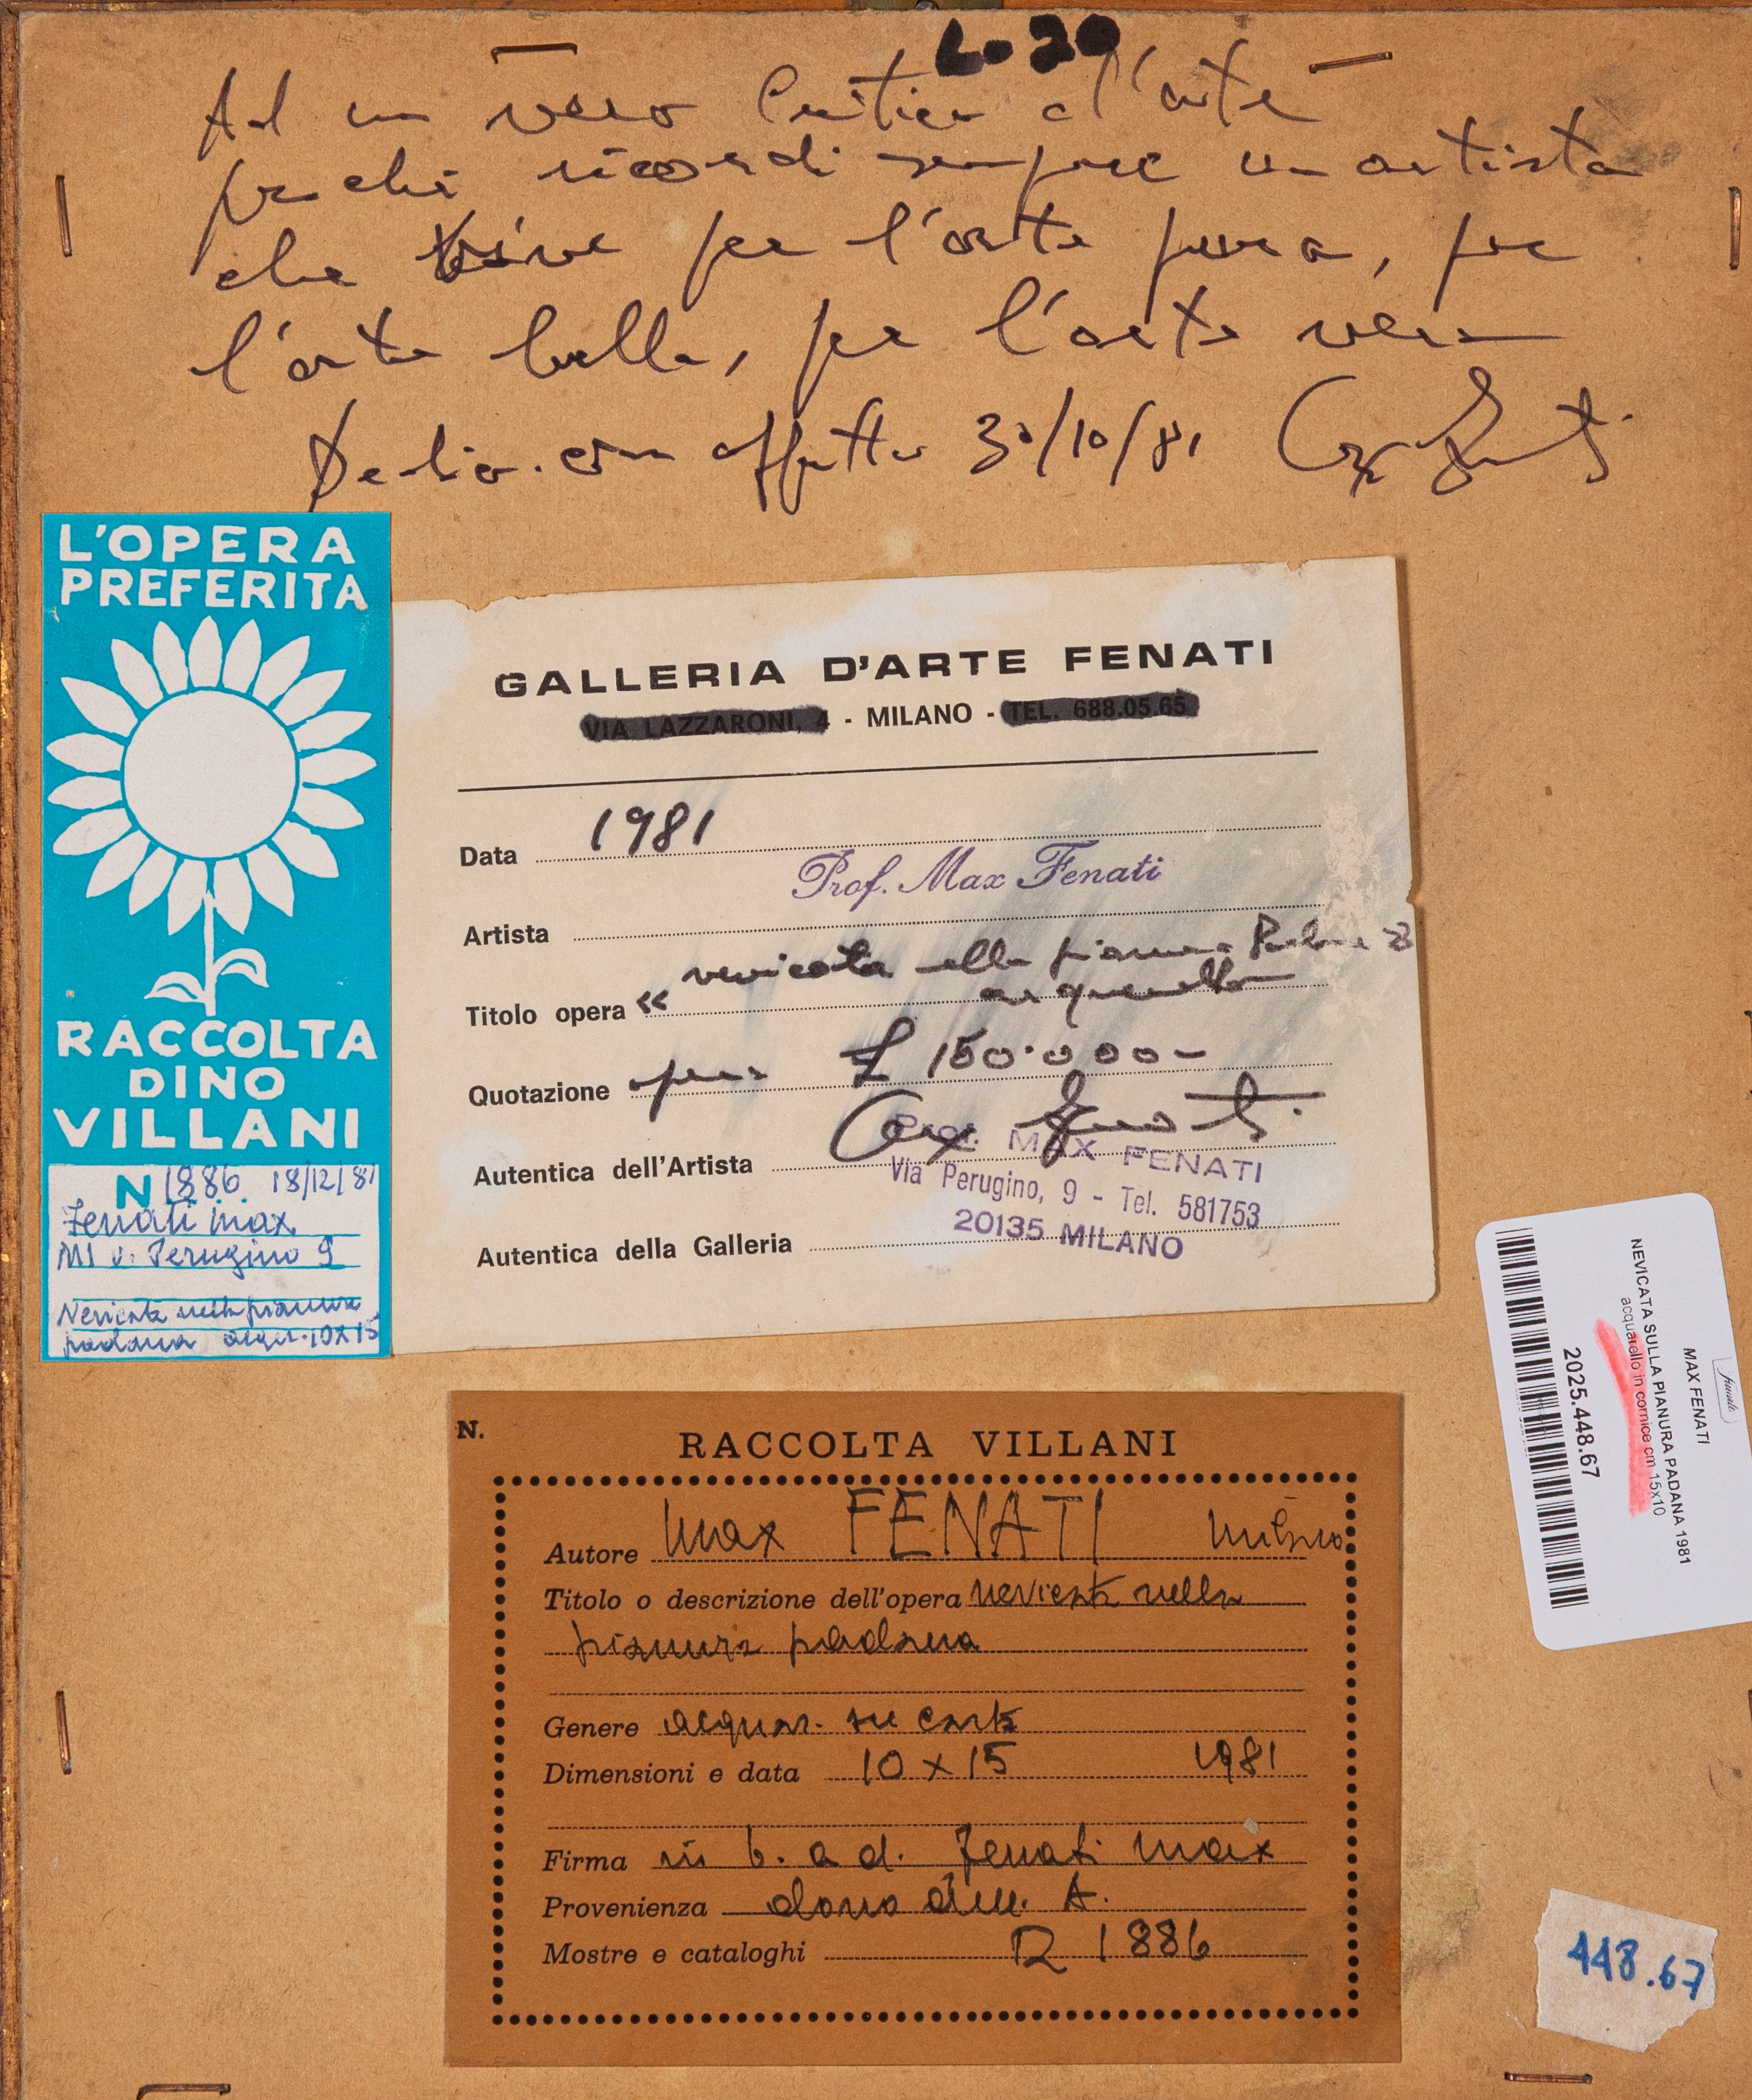 L. 20
Ad un vero Critico d'arte
perché ricordi sempre un artista
che vive per l'arte pura, per
l'arte bella, per l'arte vera
Dedico con affetto 30/10/81 Max Fenati
L'OPERA
PREFERITA
RACCOLTA
DINO
VILLANI
N 1886 18/12/81
Fenati Max
MI v. Perugino 9
Nevicata nella pianura
padana acqu. 10x15
GALLERIA D'ARTE FENATI
VIA LAZZARONI, 4 - MILANO - TEL. 688.05.65
Data 1981
Prof. Max Fenati
Artista
Titolo opera « nevicata nella pianura Padana »
acquerello
Quotazione £ 150.000-
Max Fenati
Autentica dell'Artista
Prof. MAX FENATI
Via Perugino, 9 - Tel. 581753
20135 MILANO
Autentica della Galleria
finarte
MAX FENATI
NEVICATA SULLA PIANURA PADANA 1981
acquarello in cornice cm 15x10
2025.448.67
N.
RACCOLTA VILLANI
Autore Max FENATI Milano
Titolo o descrizione dell'opera nevicata nella
pianura padana
Genere acquar. su carta
Dimensioni e data 10 x 15 1981
Firma in b. a d. Fenati Max
Provenienza dono dell' A.
Mostre e cataloghi R 1886
448.67